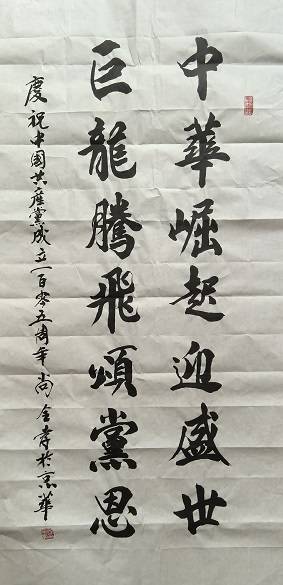 中華崛起迎盛世
巨龍騰飛頌黨恩
慶祝中國共産黨成立一百零五周年尚金孝於京華